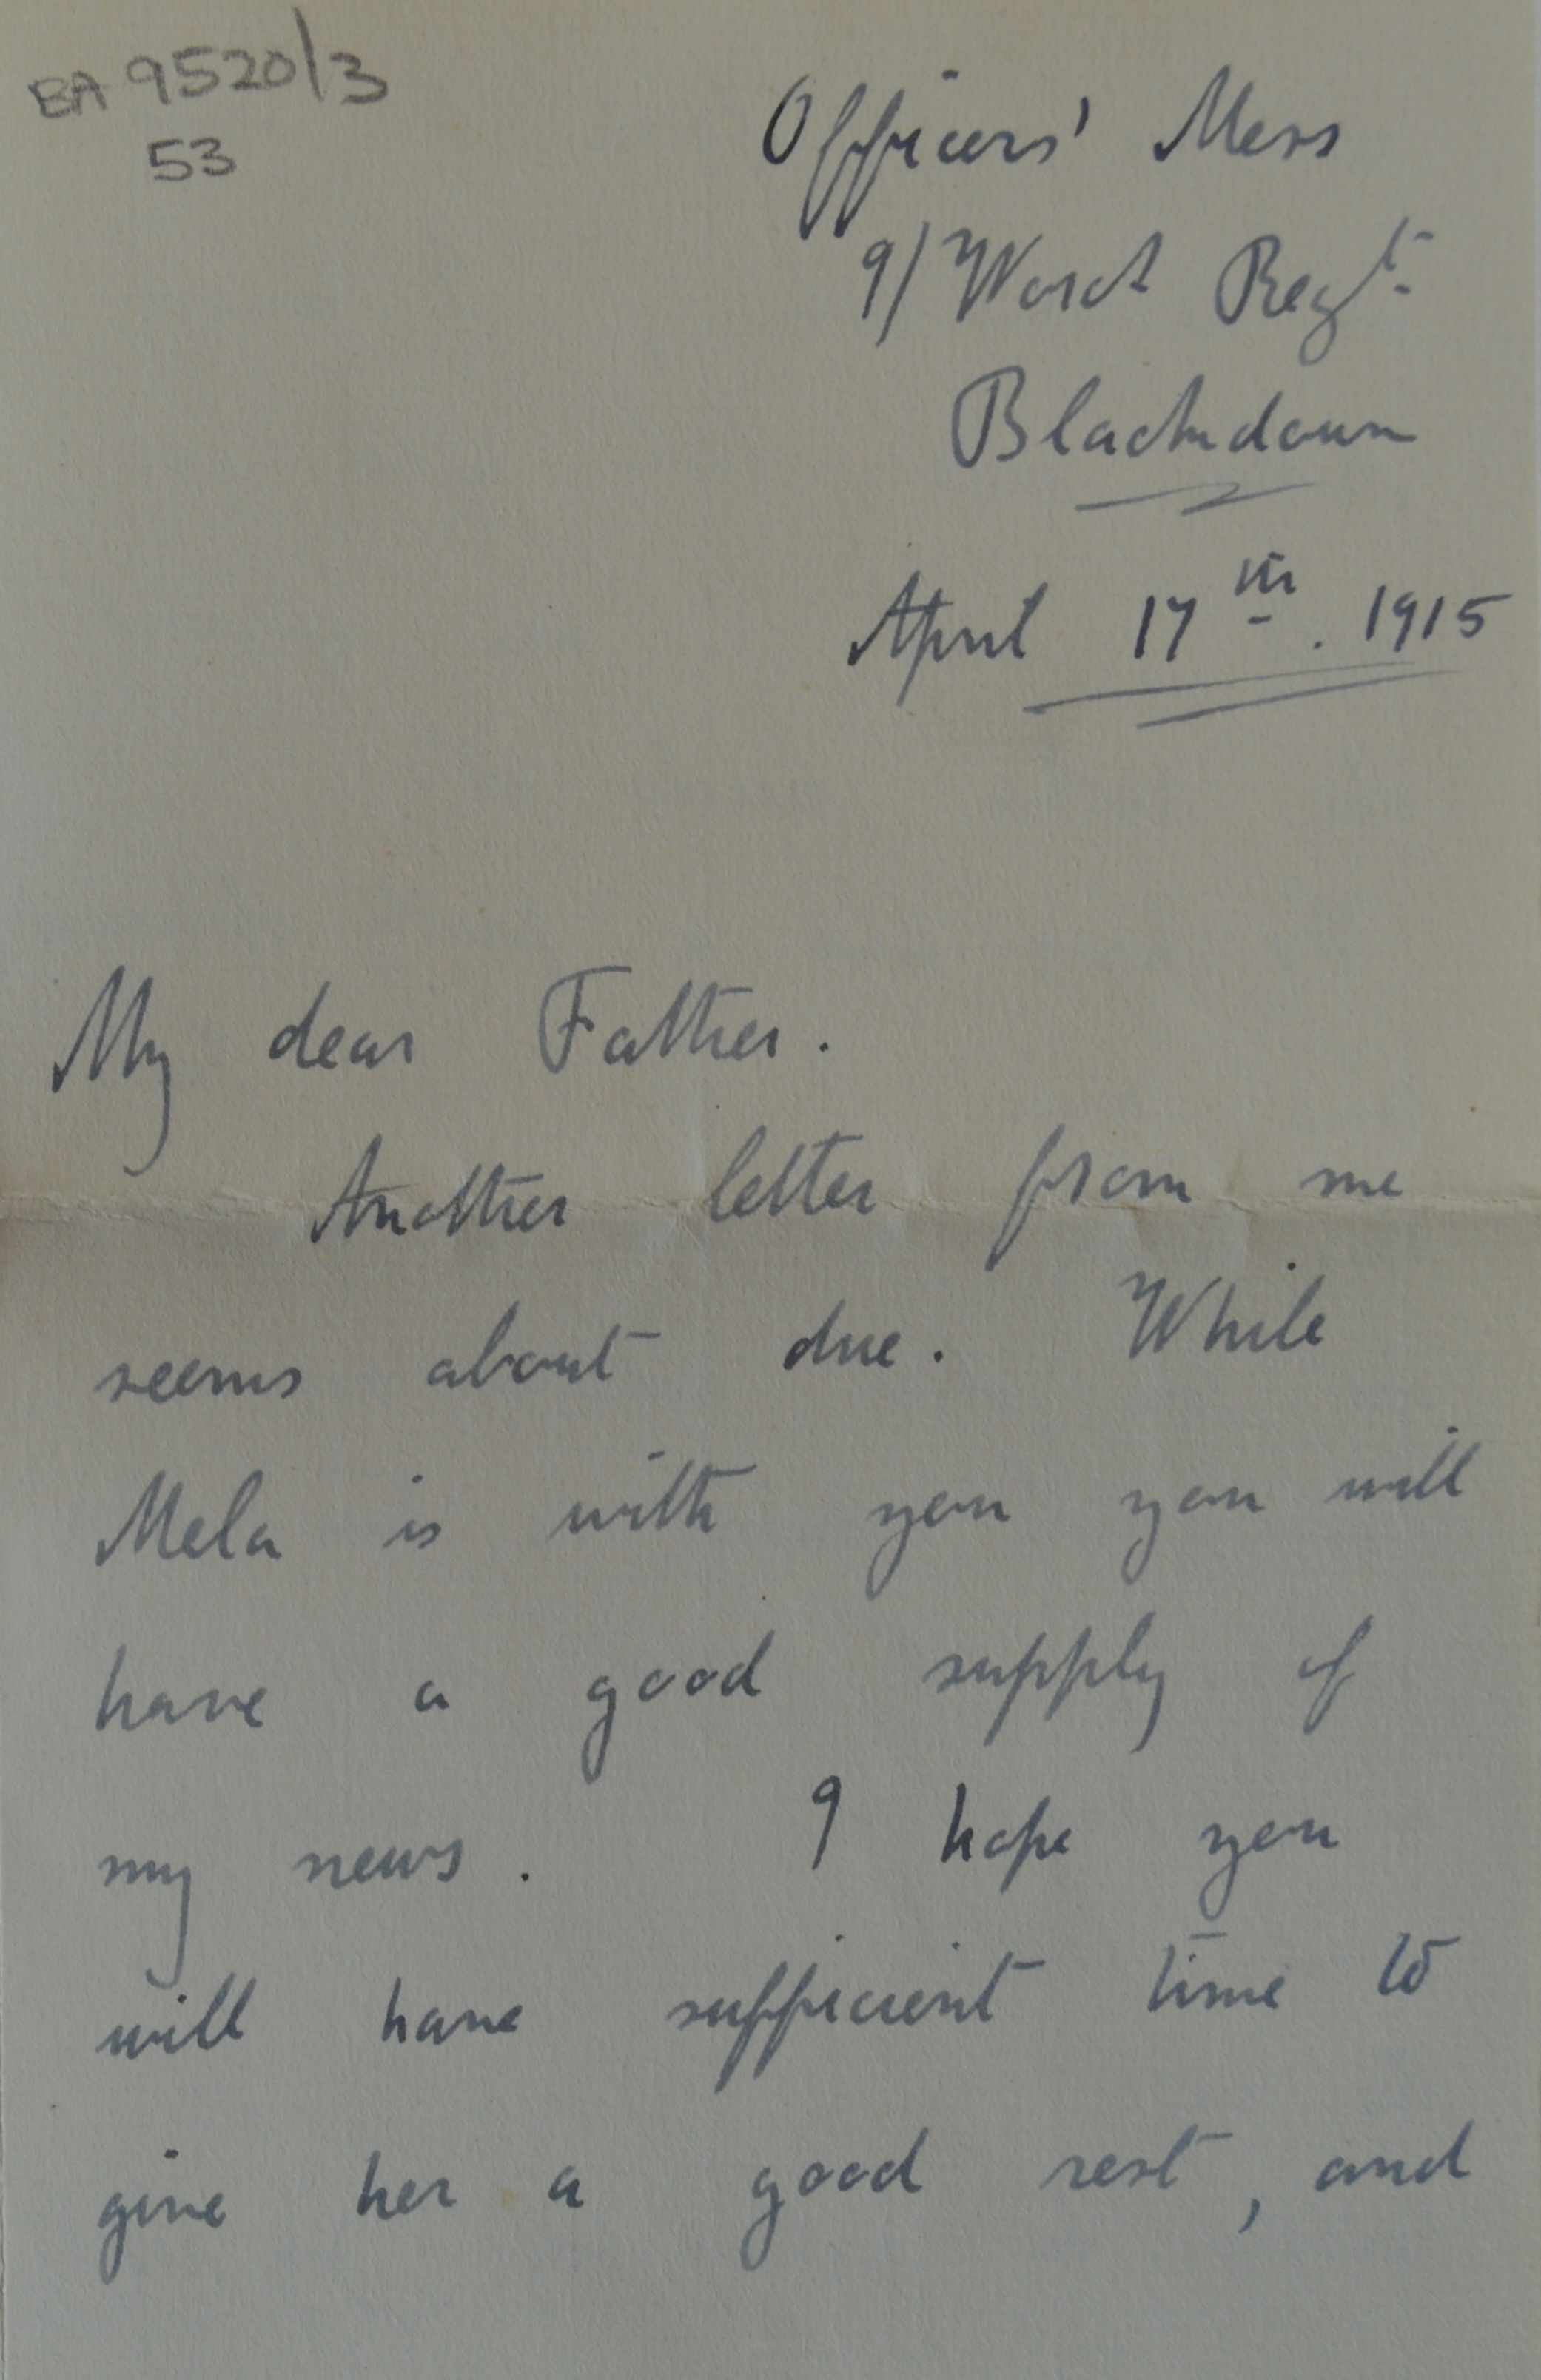 BA 9520/3
53
Officers' Mess
9/ Worct Regt.
Blackdown
April 17th. 1915
My dear Father.
Another letter from me
seems about due. While
Mela is with you you will
have a good supply of
my news. I hope you
will have sufficient time to
give her a good rest, and